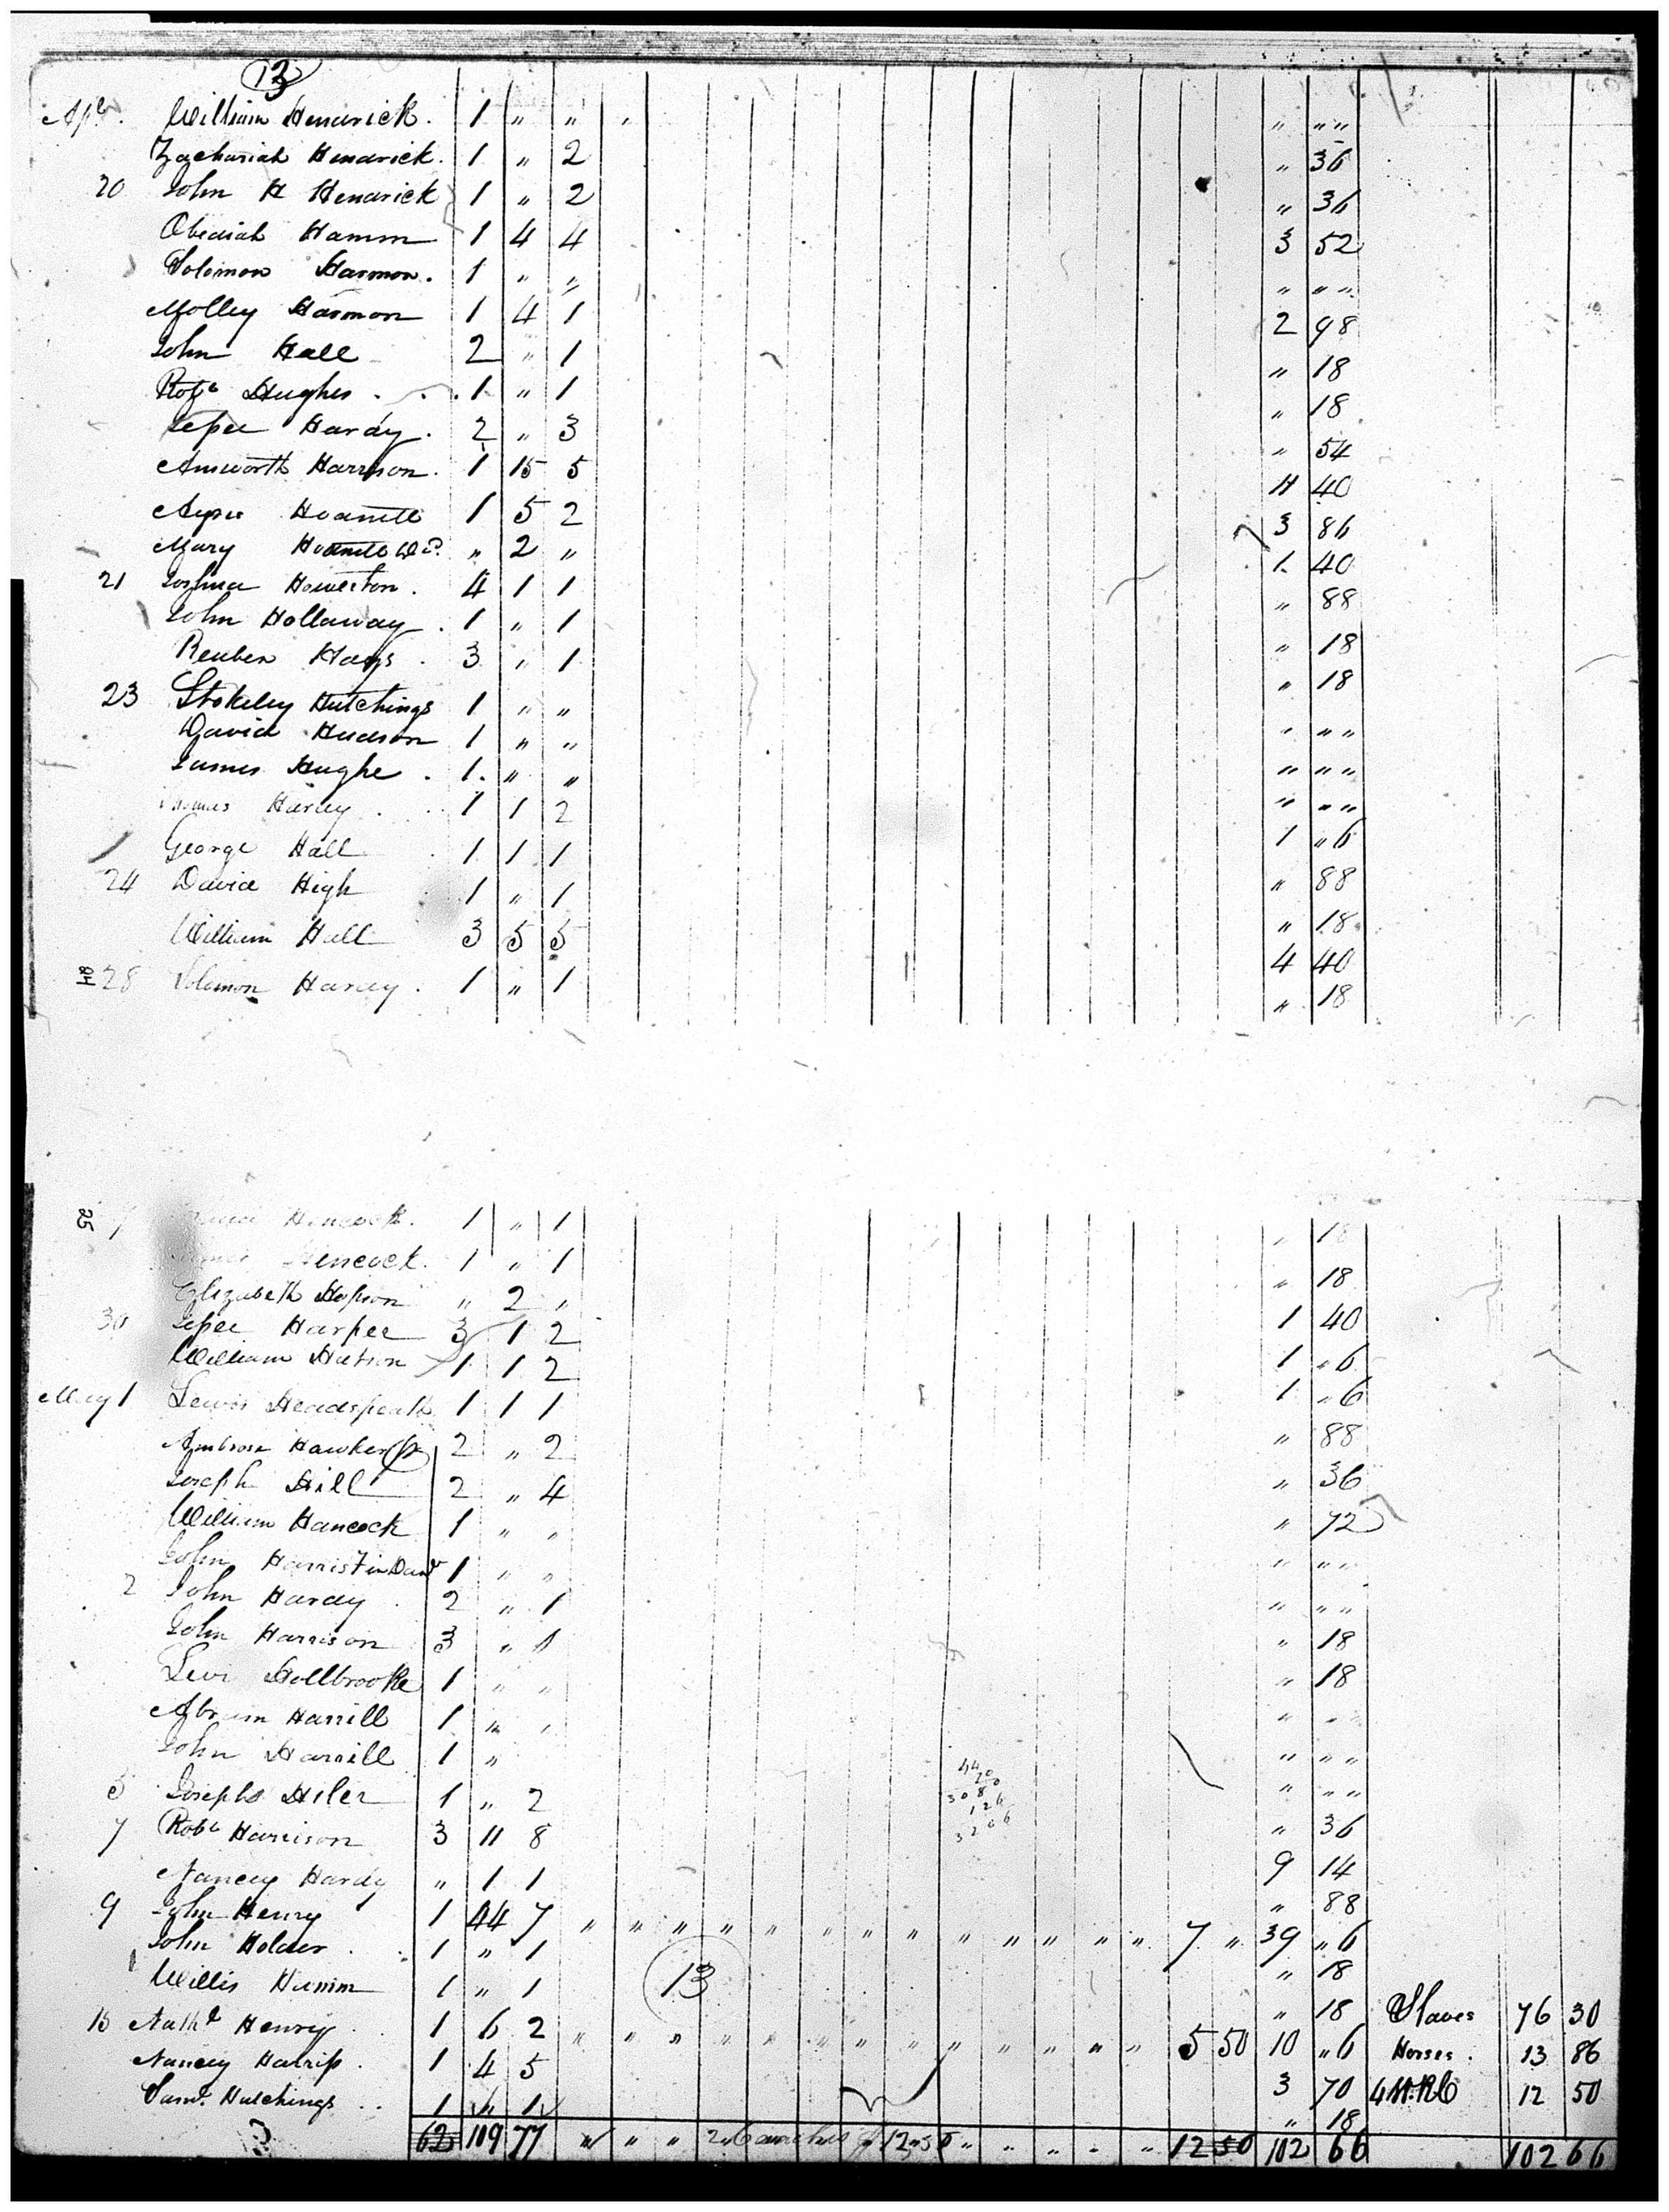 13
Apl. William Hendrick. 1 " " " " " "
Zachariah Hendrick. 1 " 2 " 36
20 John H Hendrick 1 " 2 " 36
Obediah Hamm 1 4 4 3 52
Solomon Harmon. 1 " " " " "
Molley Harmon 1 4 1 2 98
John Hall 2 " 1 " 18
Robt Hughes . . . 1 " 1 " 18
Jesse Hardy. 2 " 3 " 54
Ainsworth Harrison. 1 15 5 11 40
1 5 2 3 86
Mary " 2 " 1 40
21 Joshua Howerton. 4 1 1 " 88
John Hollaway. 1 " 1 " 18
Reuben Hays. 3 " 1 " 18
23 Stokeley Hutchings 1 " " " " "
David Hudson 1 " " " " "
James Hughe. 1. " " " " "
Thomas Hardy . . 1 1 2 1 " 6
George Hall 1 1 1 " 88
24 David High 1 " 1 " 18
William Hall 3 5 5 4 40
28 Solomon Hardy. 1 " 1 " 18
25 Hancock. 1 " 1 " 18
Hencock. 1 " 1 " 18
Elizabeth Hopson " 2 " 1 40
30 Jesse Harper 3 1 2 1 " 6
William Hutson 1 1 2 1 " 6
May 1 Lewis Headspeath 1 1 1 " 88
Ambrose Hawker 2 " 2 " 36
Joseph Hill 2 " 4 " 72
William Hancock 1 " " " " "
John Harris 1 " " " " "
2 John Hardy. 2 " 1 " 18
John Harrison 3 " 1 " 18
Levi Hollbrooke 1 " " " " "
Abram Harrill 1 " " " " "
John Harrill 1 " " " "
44
20
308
126
3206
5 Joseph Hiler 1 " 2 " 36
7 Robt Harrison 3 11 8 9 14
Nancy Hardy " 1 1 " 88
9 John Henry 1 44 7 " " " " " " " " " " " " " 7 " 39 " 6
John Holder. 1 " 1 " 18
Willis Hamm 1 " 1 13 " 18 Slaves 76 30
15 Nathl Henry . . 1 6 2 " " " " " " " " " " " " " 5 50 10 " 6 Horses. 13 86
Nancy 1 4 5 3 70 4 12 50
Saml. Hutchings . . 1 " 1 " 18
62 109 77 " " " 12 50 " " " " " 12 50 102 66 102 66